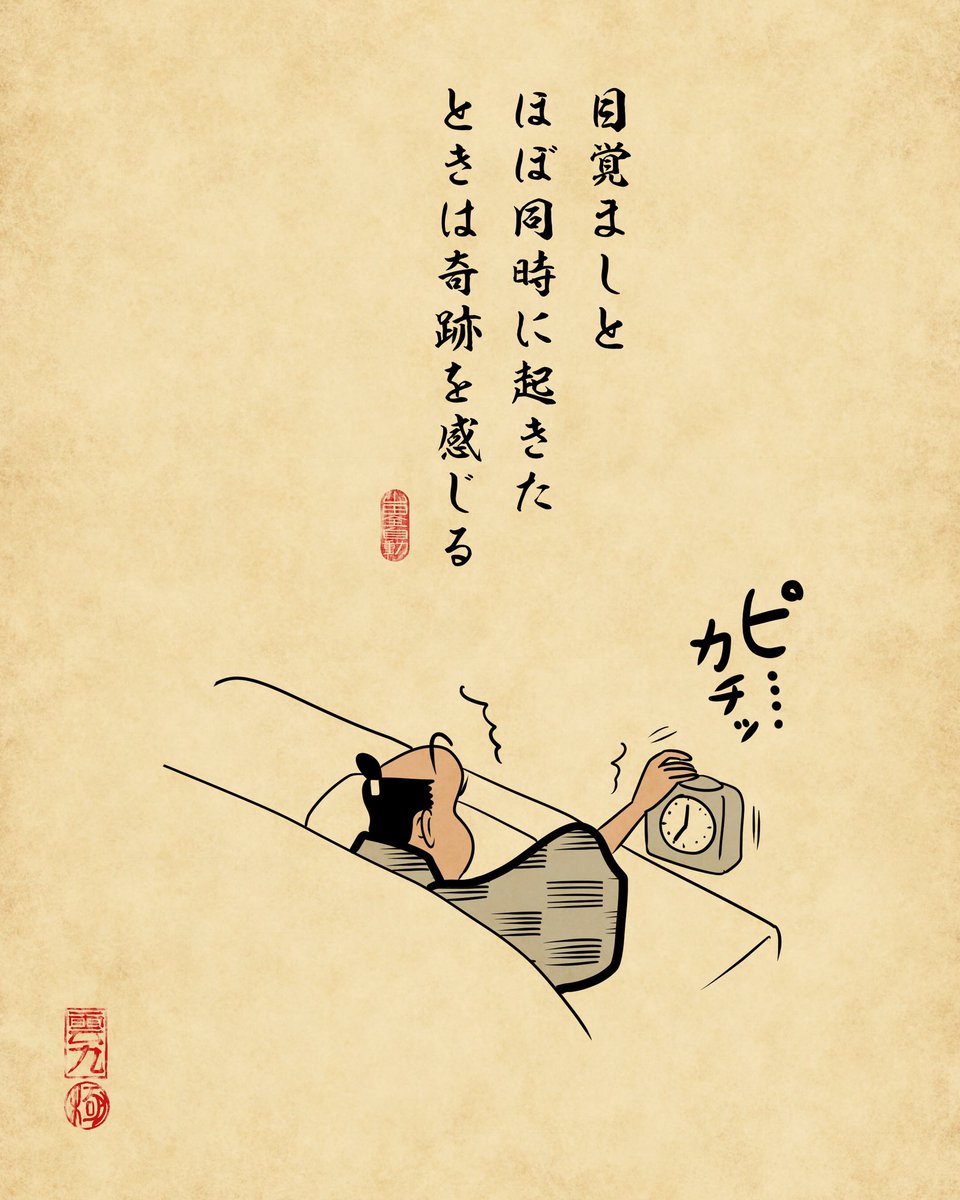 目覚ましと
ほぼ同時に起きた
ときは奇跡を感じる
ピ……
カチッ